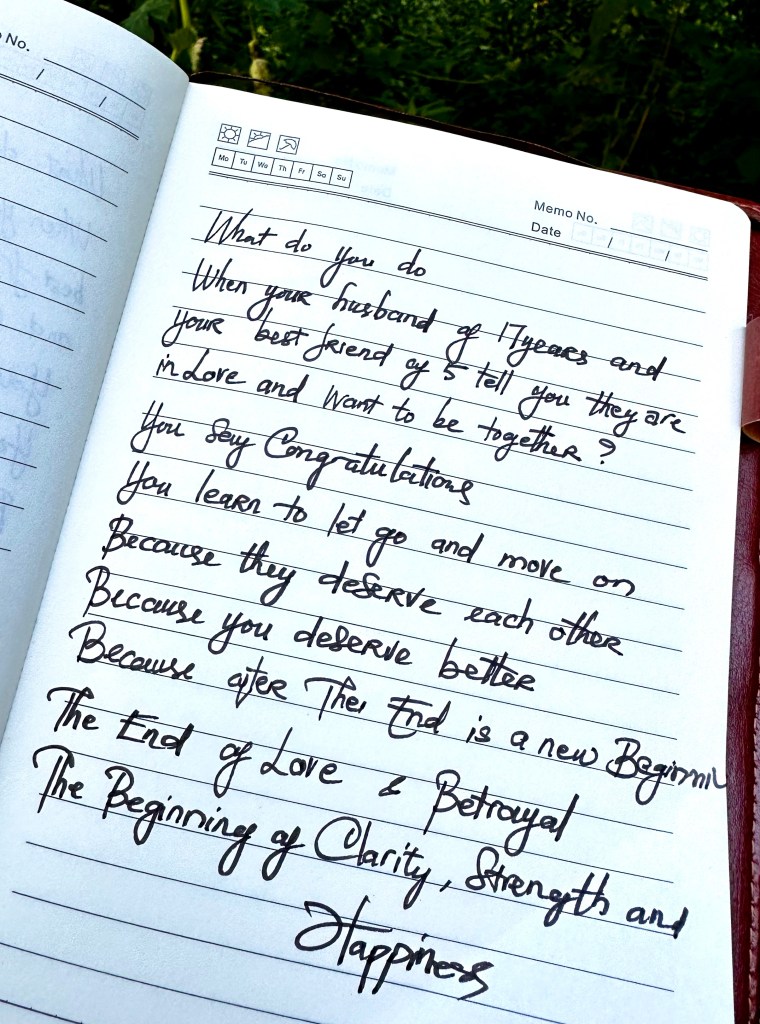 No.
/ /
Mo Tu We Th Fr Sa Su
Memo No.
Date / /
What do you do
When your husband of 17 years and
your best friend of 5 tell you they are
in Love and want to be together?
You say Congratulations
You learn to let go and move on
Because they deserve each other
Because you deserve better
Because after The End is a new Beginni
The End of Love & Betrayal
The Beginning of Clarity, Strength and
Happiness